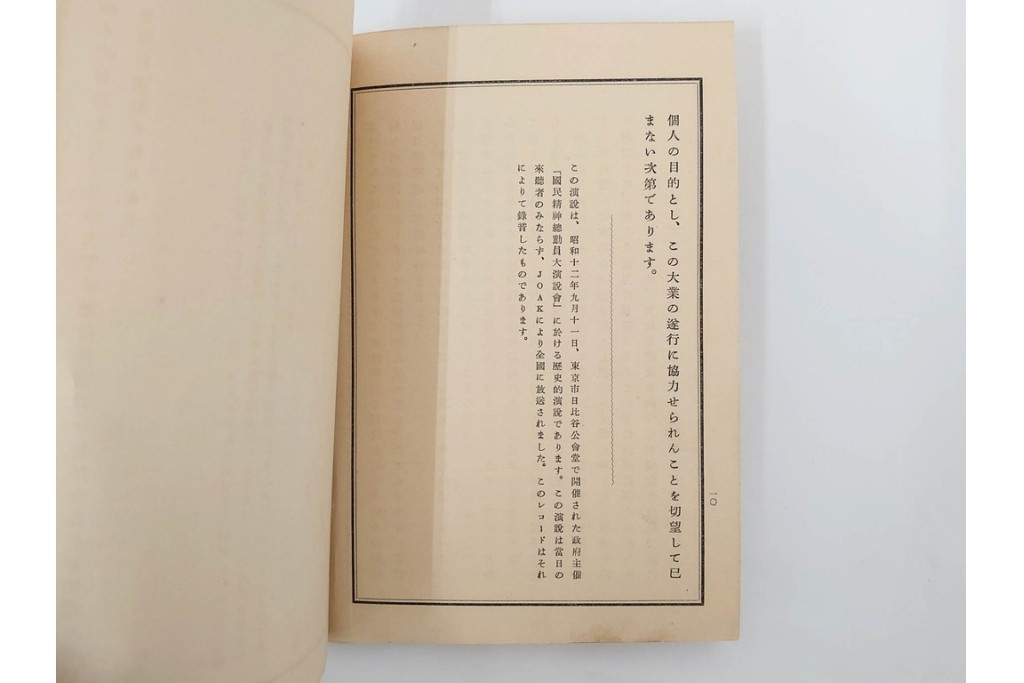 個人の目的とし、この大業の遂行に協力せられんことを切望して已
まない次第であります。
この演說は、昭和十二年九月十一日、東京市日比谷公會堂で開催された政府主催
「國民精神總動員大演說會」に於ける歷史的演說であります。この演說は當日の
來聽者のみならず、JOAKにより全國に放送されました。このレコードはそれ
によりて錄音したものであります。
一〇